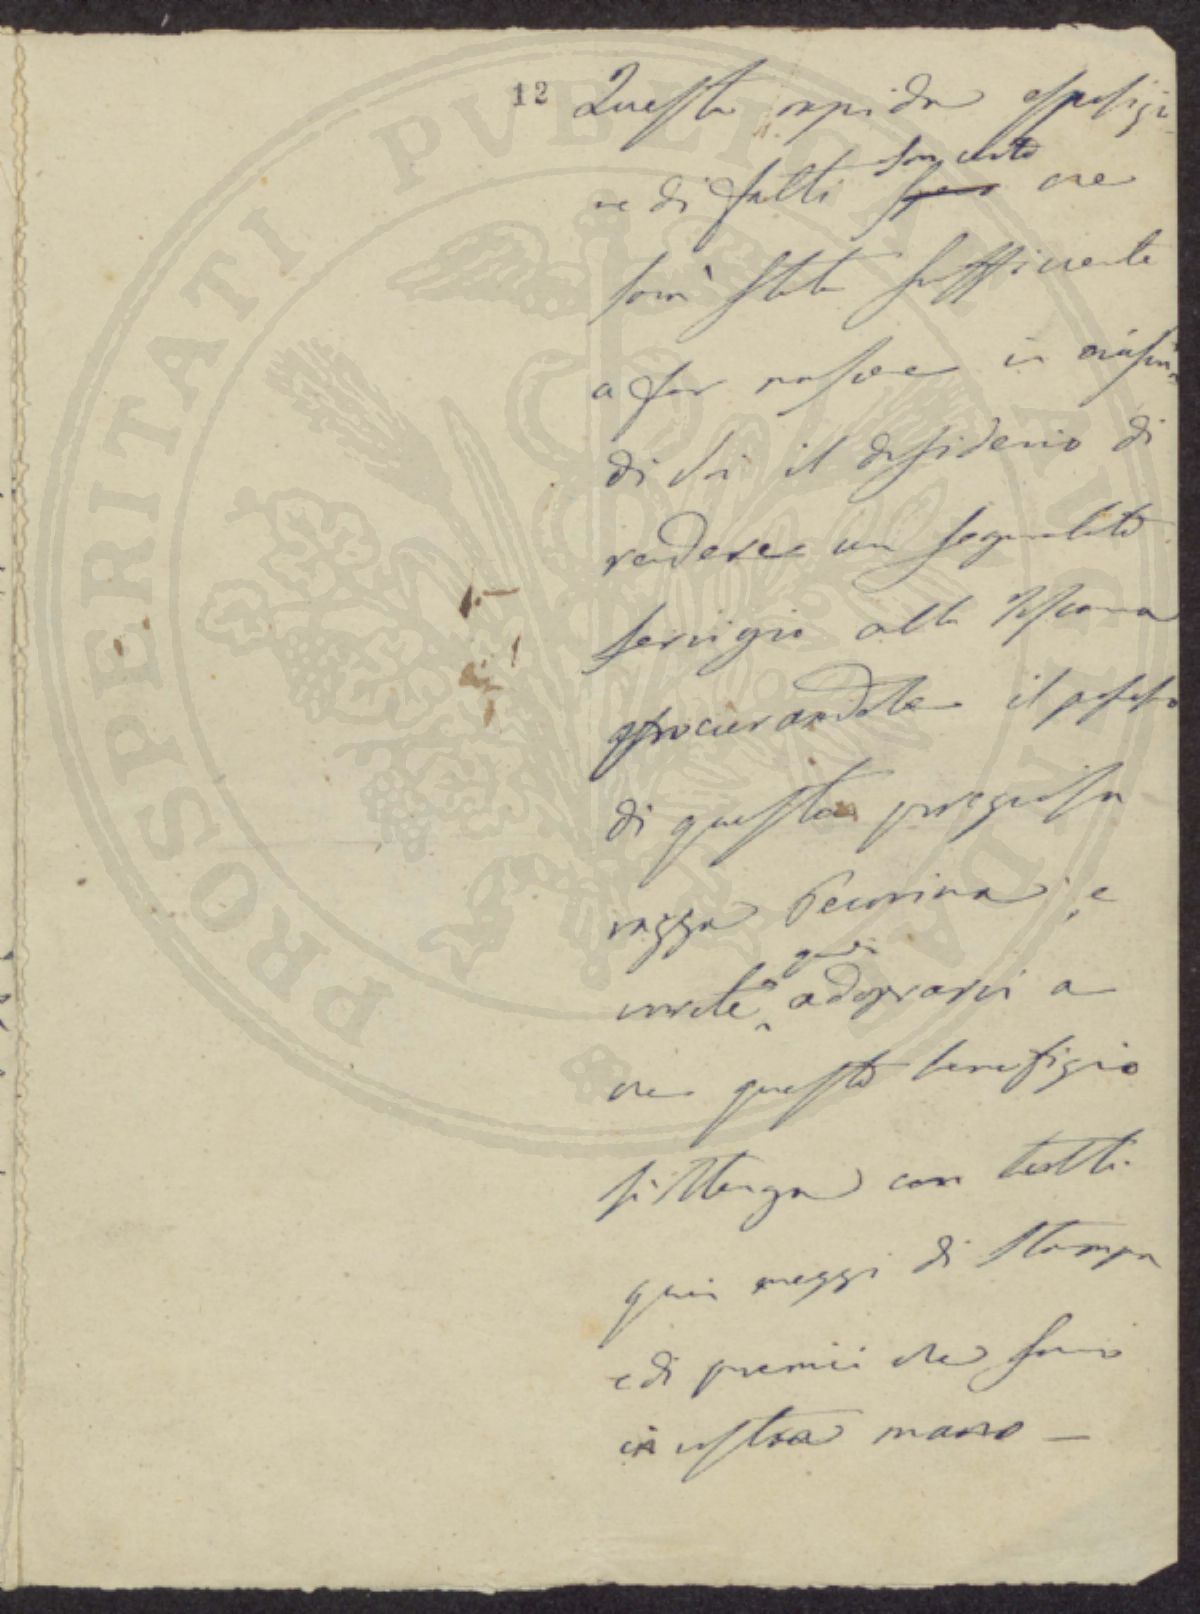 12 Questa rapida esposizio
ne di fatti son certo che
sarà stata sufficiente
a far nascere in ciascun
di voi il desiderio di
rendere un segnalato
servigio alla Toscana
procurandole il possesso
di questa preziosa
razza Pecorina, e
vorrete quindi adoprarvi a
che questo benefizio
si ottenga con tutti
quei mezzi di stampa
e di premii che sono
in vostra mano —
PROSPERITATI PVBLICAE AVGENDAE